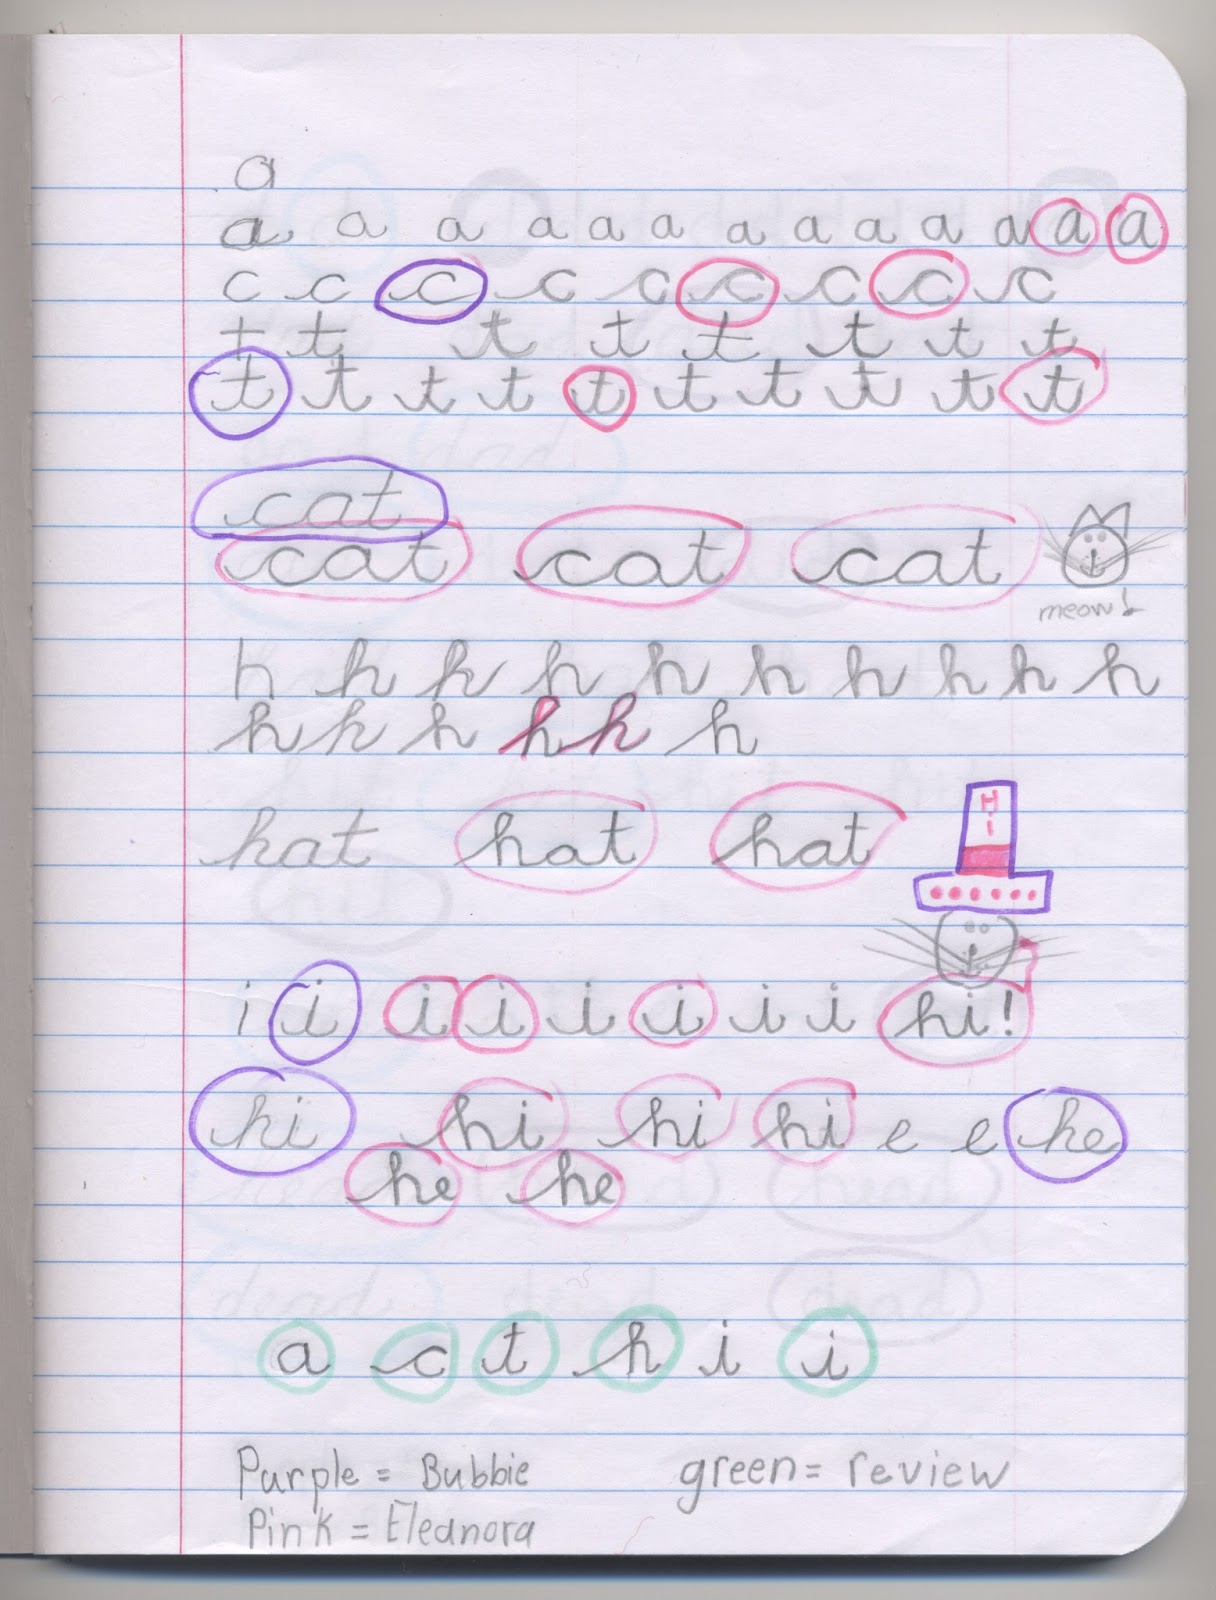 a
a a a a a a a a a a a a a
c c c c c c c c c
t t t t t t t t
t t t t t t t t t t
cat
cat cat cat
meow!
h h h h h h h h h h
h h h h h h
hat hat hat
Hi
i i i i i i i i hi!
hi hi hi hi e e he
he he
a c t h i i
Purple = Bubbie green = review
Pink = Eleanora